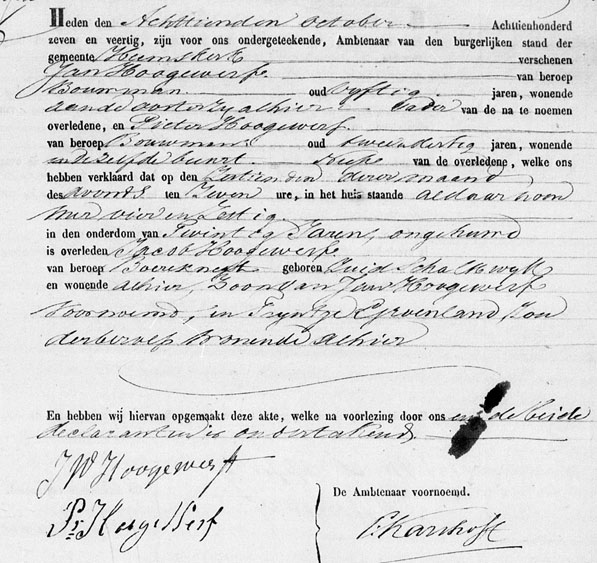 Heden den Achttienden October Achttienhonderd
zeven en veertig, zijn voor ons ondergeteekende, Ambtenaar van den burgerlijken stand der
gemeente Heemskerk verschenen
Jan Hoogewerf van beroep
Bouwman oud vyftig jaren, wonende
aan de oosterzy alhier Vader van de na te noemen
overledene, en Pieter Hoogewerf
van beroep Bouwman oud twee en dertig jaren, wonende
in de zelfde buurt van de overledene, welke ons
hebben verklaard dat op den Zestienden dezer maand
des avonds ten Zeven ure, in het huis staande aldaar nom
mer vier en Zestig
in den onderdom van Twintig Jaren, ongehuwd
is overleden Jacob Hoogewerf
van beroep Boereknegt geboren Zuid Schalkwyk
en wonende alhier, Zoon van Jan Hoogewerf
Voornoemd, en Tryntje Groenland, Zon
der beroep Wonende alhier
En hebben wij hiervan opgemaakt deze akte, welke na voorlezing door ons en de beide
declaranten is onderteekend
J W Hoogewerf
Pr Hoogewerf
De Ambtenaar voornoemd.